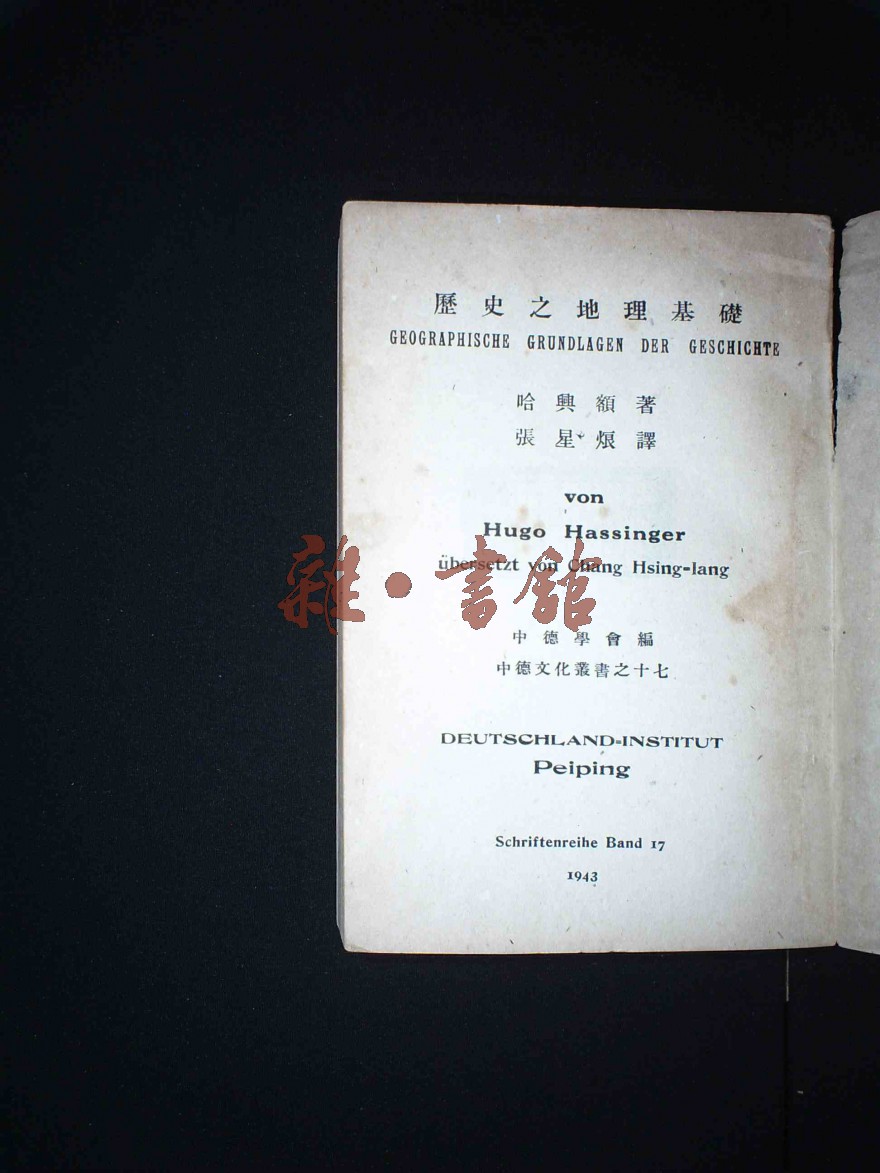 歷史之地理基礎
GEOGRAPHISCHE GRUNDLAGEN DER GESCHICHTE
哈興額著
張星烺譯
von
Hugo Hassinger
übersetzt von Chang Hsing-lang
雜·書館
中德學會編
中德文化叢書之十七
DEUTSCHLAND-INSTITUT
Peiping
Schriftenreihe Band 17
1943